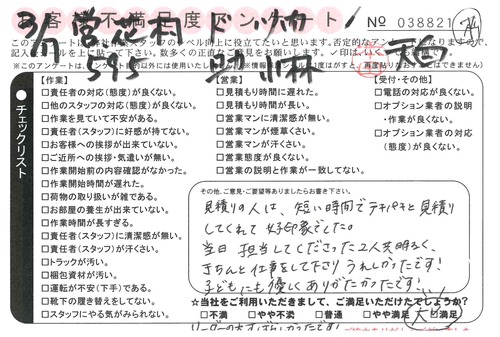 お客様不満足度アンケート
№ 038821
営業 村 ド
595 助 小林
このアンケートは スタッフのレベル向上に役立てたいと思います。否定的なアン
記入 を上に貼って下さい。数多くの正直なご意見をお聞かせ下さい。✓印は、いく
※このアンケートは、
【作業】
□責任者の対応(態度)が良くない。
□他のスタッフの対応(態度)が良くない。
□作業を見ていて不安がある。
□責任者(スタッフ)に好感が持てない。
□お客様への挨拶が出来ていない。
□ご近所への挨拶・気遣いが無い。
□作業開始前の内容確認がなかった。
□作業開始時間が遅れた。
□荷物の取り扱いが雑である。
□お部屋の養生が出来ていない。
□作業時間が長すぎる。
□責任者(スタッフ)に清潔感が無い。
□責任者(スタッフ)が汗くさい。
□トラックが汚い。
□梱包資材が汚い。
□運転が不安(下手)である。
□靴下の履き替えをしてくれない。
□スタッフにやる気がみられない。
【営業】
□見積もり時間に遅れた。
□見積もり時間が長い。
□営業マンに清潔感が無い。
□営業マンが煙草くさい。
□営業マンが汗くさい。
□営業態度が良くない。
□営業の説明と作業が一致してない。
【受付・その他】
□電話の対応が良くない。
□オプション業者の説明
・作業が良くない。
□オプション業者の対応
(態度)が良くない。
チェックリスト
その他、ご意見・ご要望等ありましたらお書き下さい。
見積りの人は、短い時間でテキパキと見積り
してくれて 好印象でした。
当日 担当してくださった2人共明るく、
きちんと仕事をして下さり うれしかったです!
子どもにも優しくありがたかったです!
☆当社をご利用いただきまして、ご満足いただけたでしょうか?
□不満 □やや不満 □普通 □やや満足 大 満足